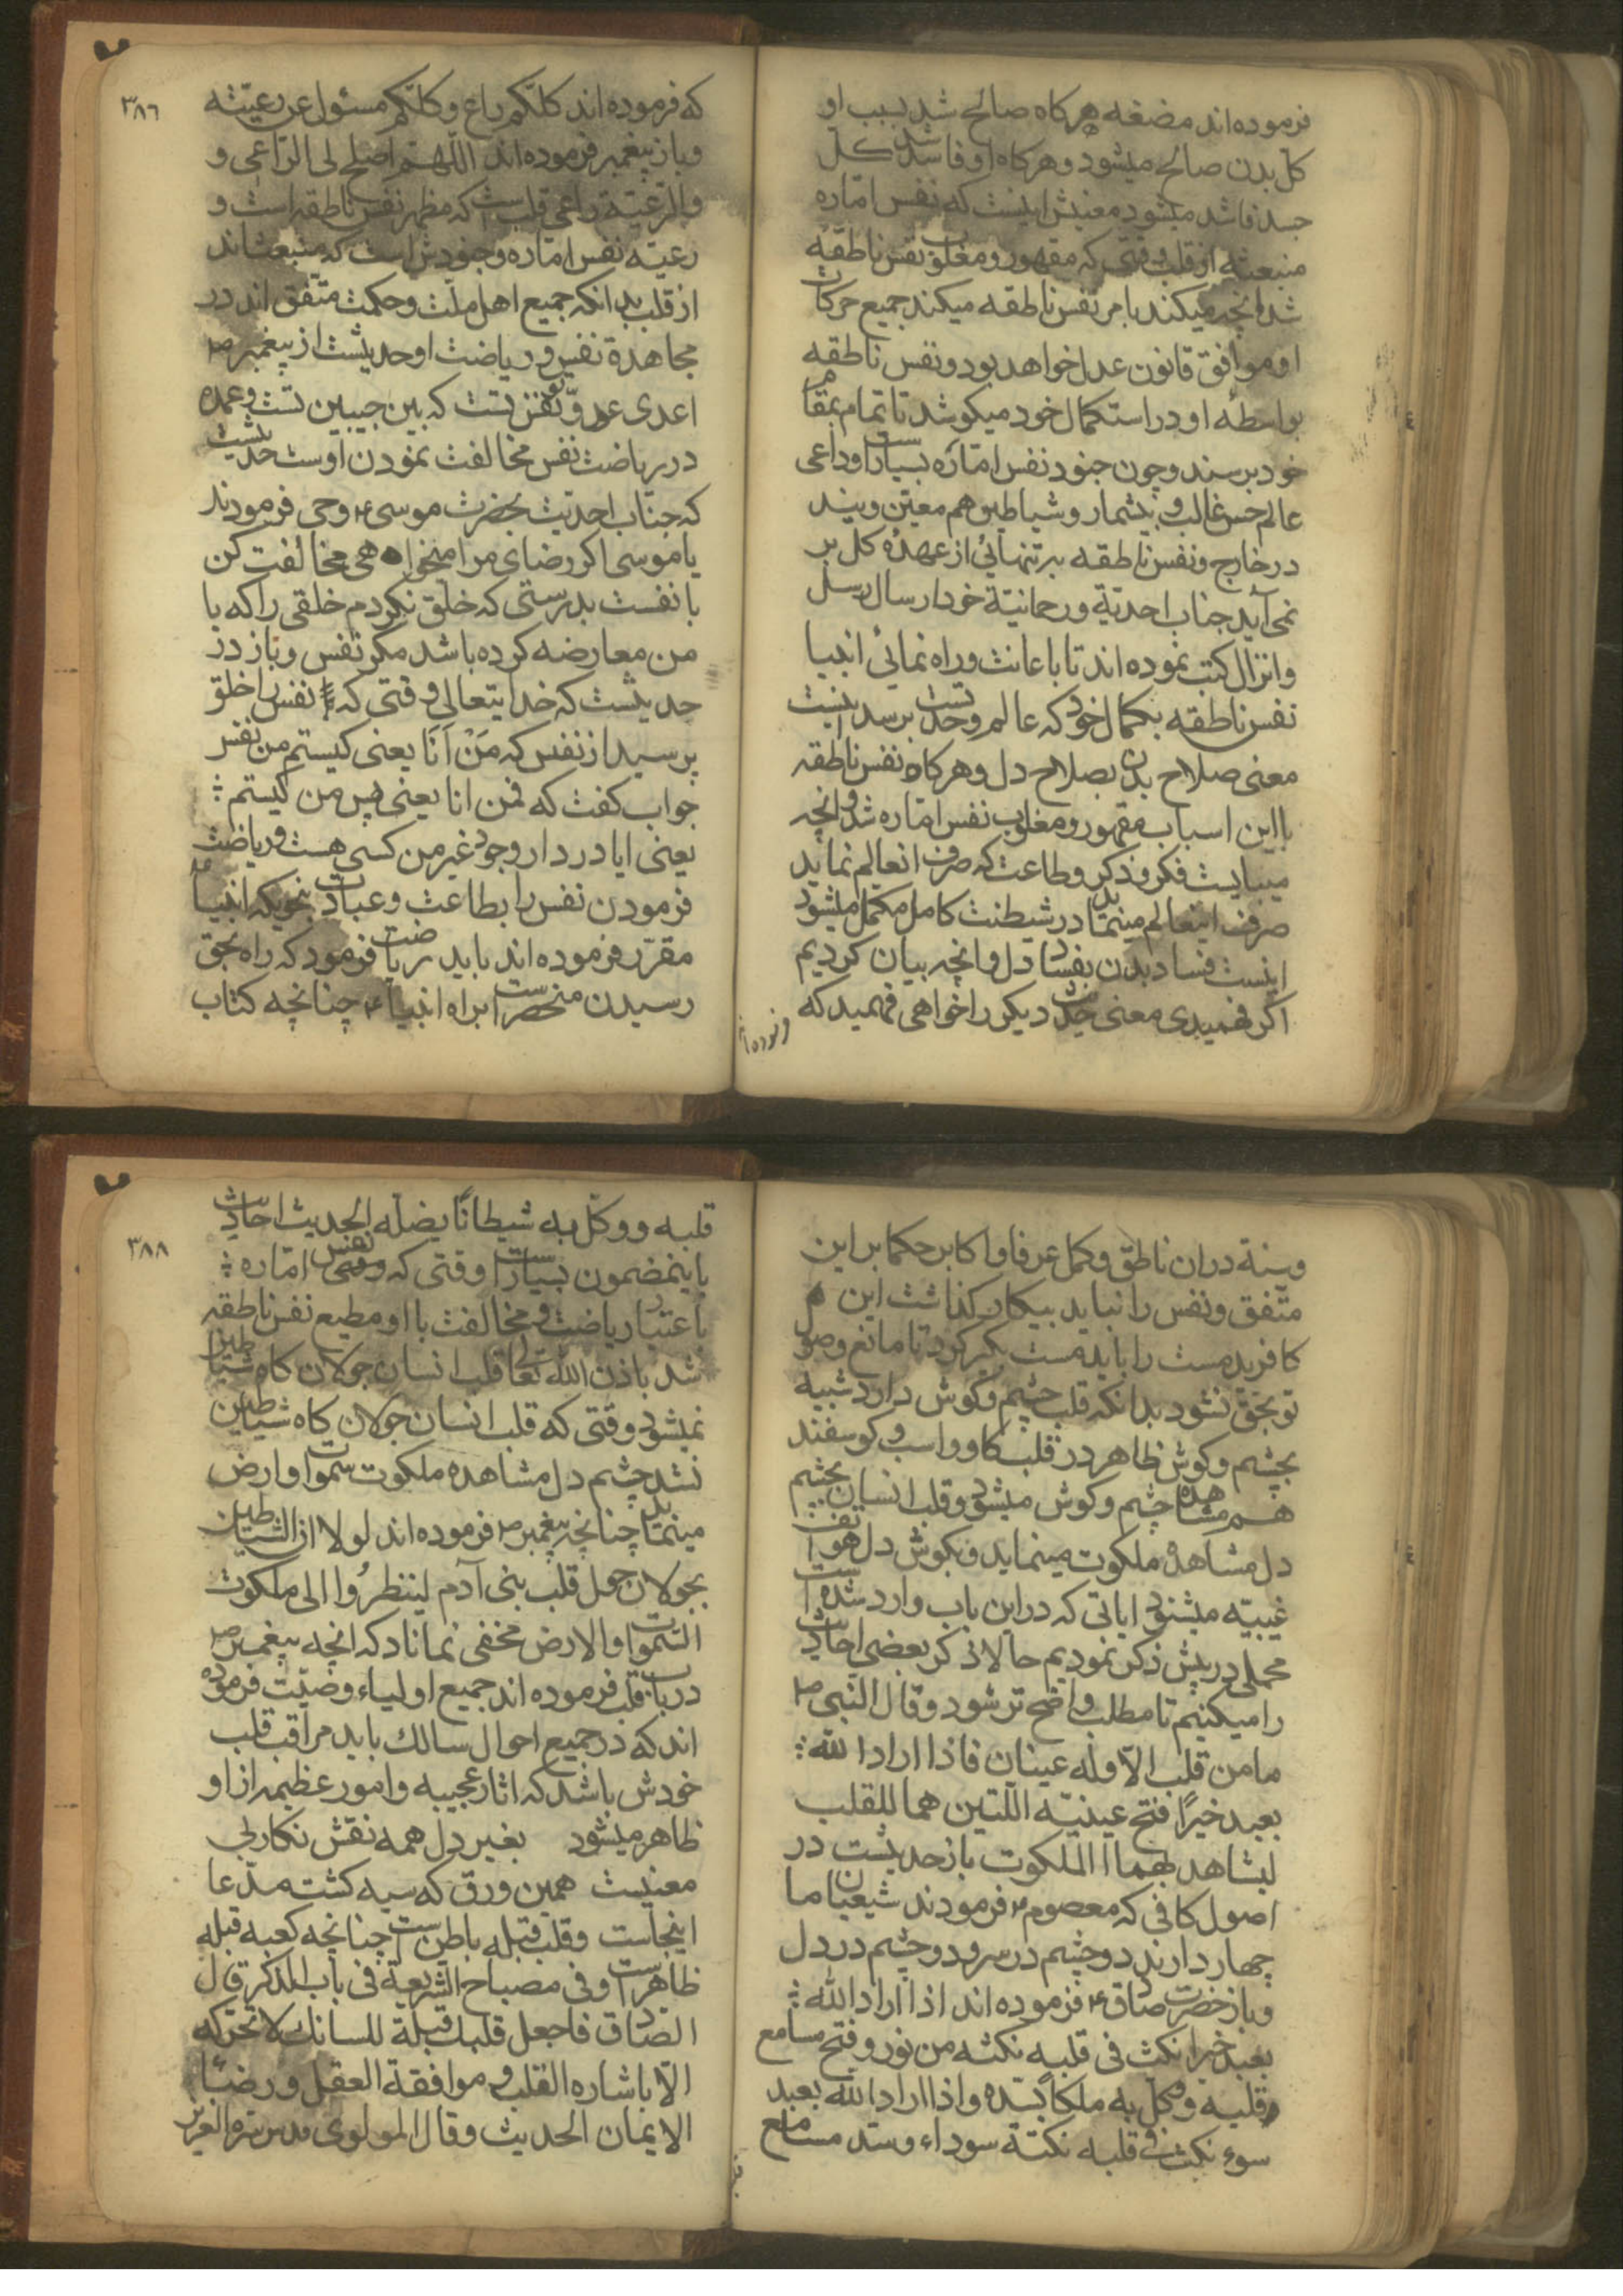 فرموده اند مضغه هرکاه صالح شد بسبب او
کل بدن صالح میشود و هرکاه او فاسد شد کل
جسد فاسد میشود معنیش اینست که نفس اماره
منبعثه از قلب وقتی که مقهور و مغلوب نفس ناطقه
شد انچه میکند بامر نفس ناطقه میکند جمیع حرکات
او موافق قانون عدل خواهد بود و نفس ناطقه
بواسطه او در استکمال خود میکوشد تا تمام بمقام
خود برسند و چون جنود نفس اماره بسیار است و داعی
عالم حس غالب و بیشمار و شیاطین هم معین ویند
در خارج و نفس ناطقه بر تنهائی از عهده کل بر
نمی آید جناب احدیة و رحمانیة خود ارسال رسل
و انزال کتب نموده اند تا باعانت و راه نمائی انبیا
نفس ناطقه بکمال خود که عالم وحدتست برسد اینست
معنی صلاح بدن بصلاح دل و هرکاه نفس ناطقه
با این اسباب مقهور و مغلوب نفس اماره شد و انچه
میبایست فکر و ذکر و طاعت که صرف انعالم نماید
صرف اینعالم مینماید در شیطنت کامل مکمل میشود
اینست فساد بدن بفساد دل و انچه بیان کردیم
اکر فهمیدی معنی حدیث دیکر را خواهی فهمید که
۳۸۶
که فرموده اند کلکم راع و کلکم مسئول عن رعیته
و باز پیغمبر فرموده اند اللهم اصلح لی الراعی و
والرعیته راعی قلب است که مظهر نفس ناطقه است و
رعیته نفس اماره و جنودش است که منبعث اند
از قلب بدانکه جمیع اهل ملت و حکمت متفق اند در
مجاهدة نفس و ریاضت او حدیثست از پیغمبر ص
اعدی عدوّ تو نفس تست که بین جیبین تست و عمده
در ریاضت نفس مخالفت نمودن اوست حدیثست
که جناب احدیت بحضرت موسی ع وحی فرمودند
یا موسی اکر رضای مرا میخواهی مخالفت کن
با نفست بدرستی که خلق نکردم خلقی را که با
من معارضه کرده باشد مکر نفس و باز در
حدیثست که خدایتعالی وقتی که نفس را خلق
پرسید از نفس که مَنْ اَنَا یعنی کیستم من نفس
جواب کفت که فمن انا یعنی پس من کیستم ؛
یعنی ایا در دار وجود غیر من کسی هست و ریاضت
فرمودن نفس را بطاعت و عبادت بنحویکه انبیاء
مقرر فرموده اند باید ریاضت فرمود که راه بحق
رسیدن منحصر است براه انبیاء ع چنانچه کتاب
و سنة دران ناطق و کمل عرفا و اکابر حکما بر این
متفق و نفس را نباید بیکار کذاشت این
کافر بدمست را باید مست بکر کرد تا مانع وصول
تو بحق نشود بدانکه قلب چشم و کوش دارد شبیه
بچشم و کوش ظاهر در قلب کاو و اسب و کوسفند
هم مشاهده چشم و کوش میشود و قلب انسان بچشم
دل مشاهده ملکوت مینماید و بکوش دل هواتف
غیبیّه میشنود ایاتی که در این باب وارد شده است
مجملی در پیش ذکر نمودیم حالا ذکر بعضی احادیث
را میکنیم تا مطلب واضح تر شود و قال النبی ص
ما من قلب الّا وله عینان فاذا اراد الله ؛
بعبد خیرًا فتح عینیه اللتین هما للقلب
لیشاهد بهما الملکوت باز حدیثست در
اصول کافی که معصوم ع فرمودند شیعیان ما
چهار دارند دو چشم در سر و دو چشم در دل
و باز حضرت صادق ع فرموده اند اذا اراد الله ؛
بعبد خیرا نکث فی قلبه نکته من نور و فتح مسامع
قلبه و وکّل به ملکاً یسدّه و اذا اراد الله بعبد
سوء نکت فی قلبه نکتة سوداء و سدّ مسامع
۳۸۸
قلبه و وکّل به شیطانًا یضله الحدیث احادیث
باینمضمون بسیار است وقتی که نفس اماره ؛
باعتبار ریاضت و مخالفت با او مطیع نفس ناطقه
شد باذن الله تعالی قلب انسان جولان کاه شیاطین
نمیشود و وقتی که قلب انسان جولان کاه شیاطین
نشد چشم دل مشاهده ملکوت سموات و ارض
مینماید چنانچه پیغمبر ص فرموده اند لولا ان الشیاطین
یجولان حول قلب بنی آدم لینظرُوا الی ملکوت
السّموات والارض مخفی نماناد که انچه پیغمبر ص
در باب قلب فرموده اند جمیع اولیاء وصیّت فرموده
اند که در جمیع احوال سالک باید مراقب قلب
خودش باشد که اثار عجیبه و امور عظیمه از او
ظاهر میشود بغیر دل همه نقش نکار بی
معنیست همین ورق که سیه کشت مدّعا
اینجاست و قلب قبله باطن است چنانچه کعبه قبله
ظاهر است و فی مصباح الشریعة فی باب الذکر قال
الصّادق فاجعل قلبک قبلة للسانک لا تحرّکه
الّا باشاره القلب و موافقة العقل و رضاء
الایمان الحدیث و قال المولوی قدس سره العزیز